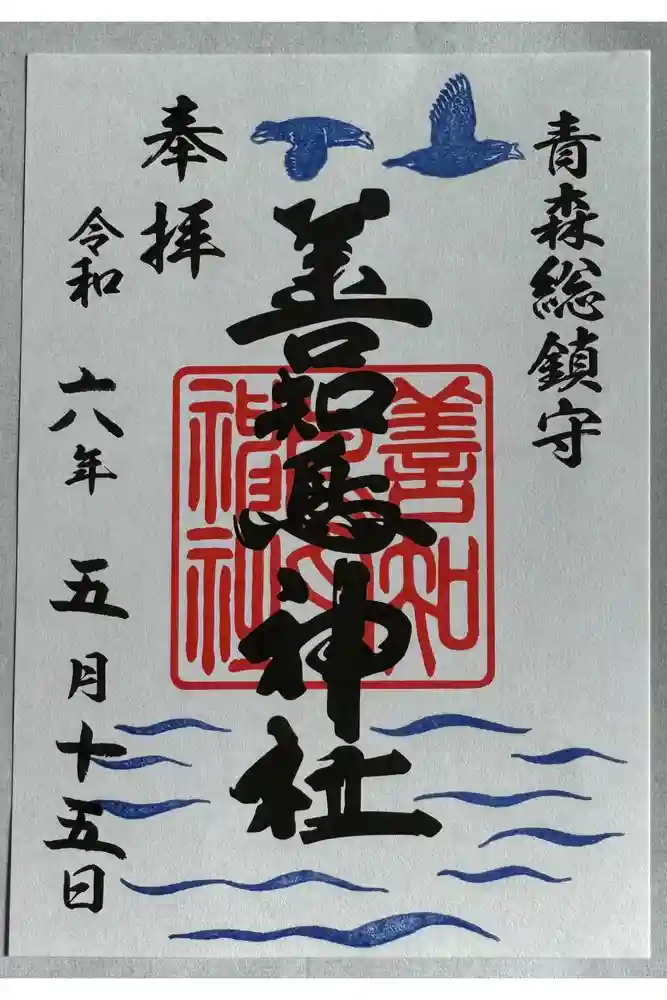 青森総鎮守
善知鳥神社
奉拝
令和六年五月十五日
善知
鳥印
神社